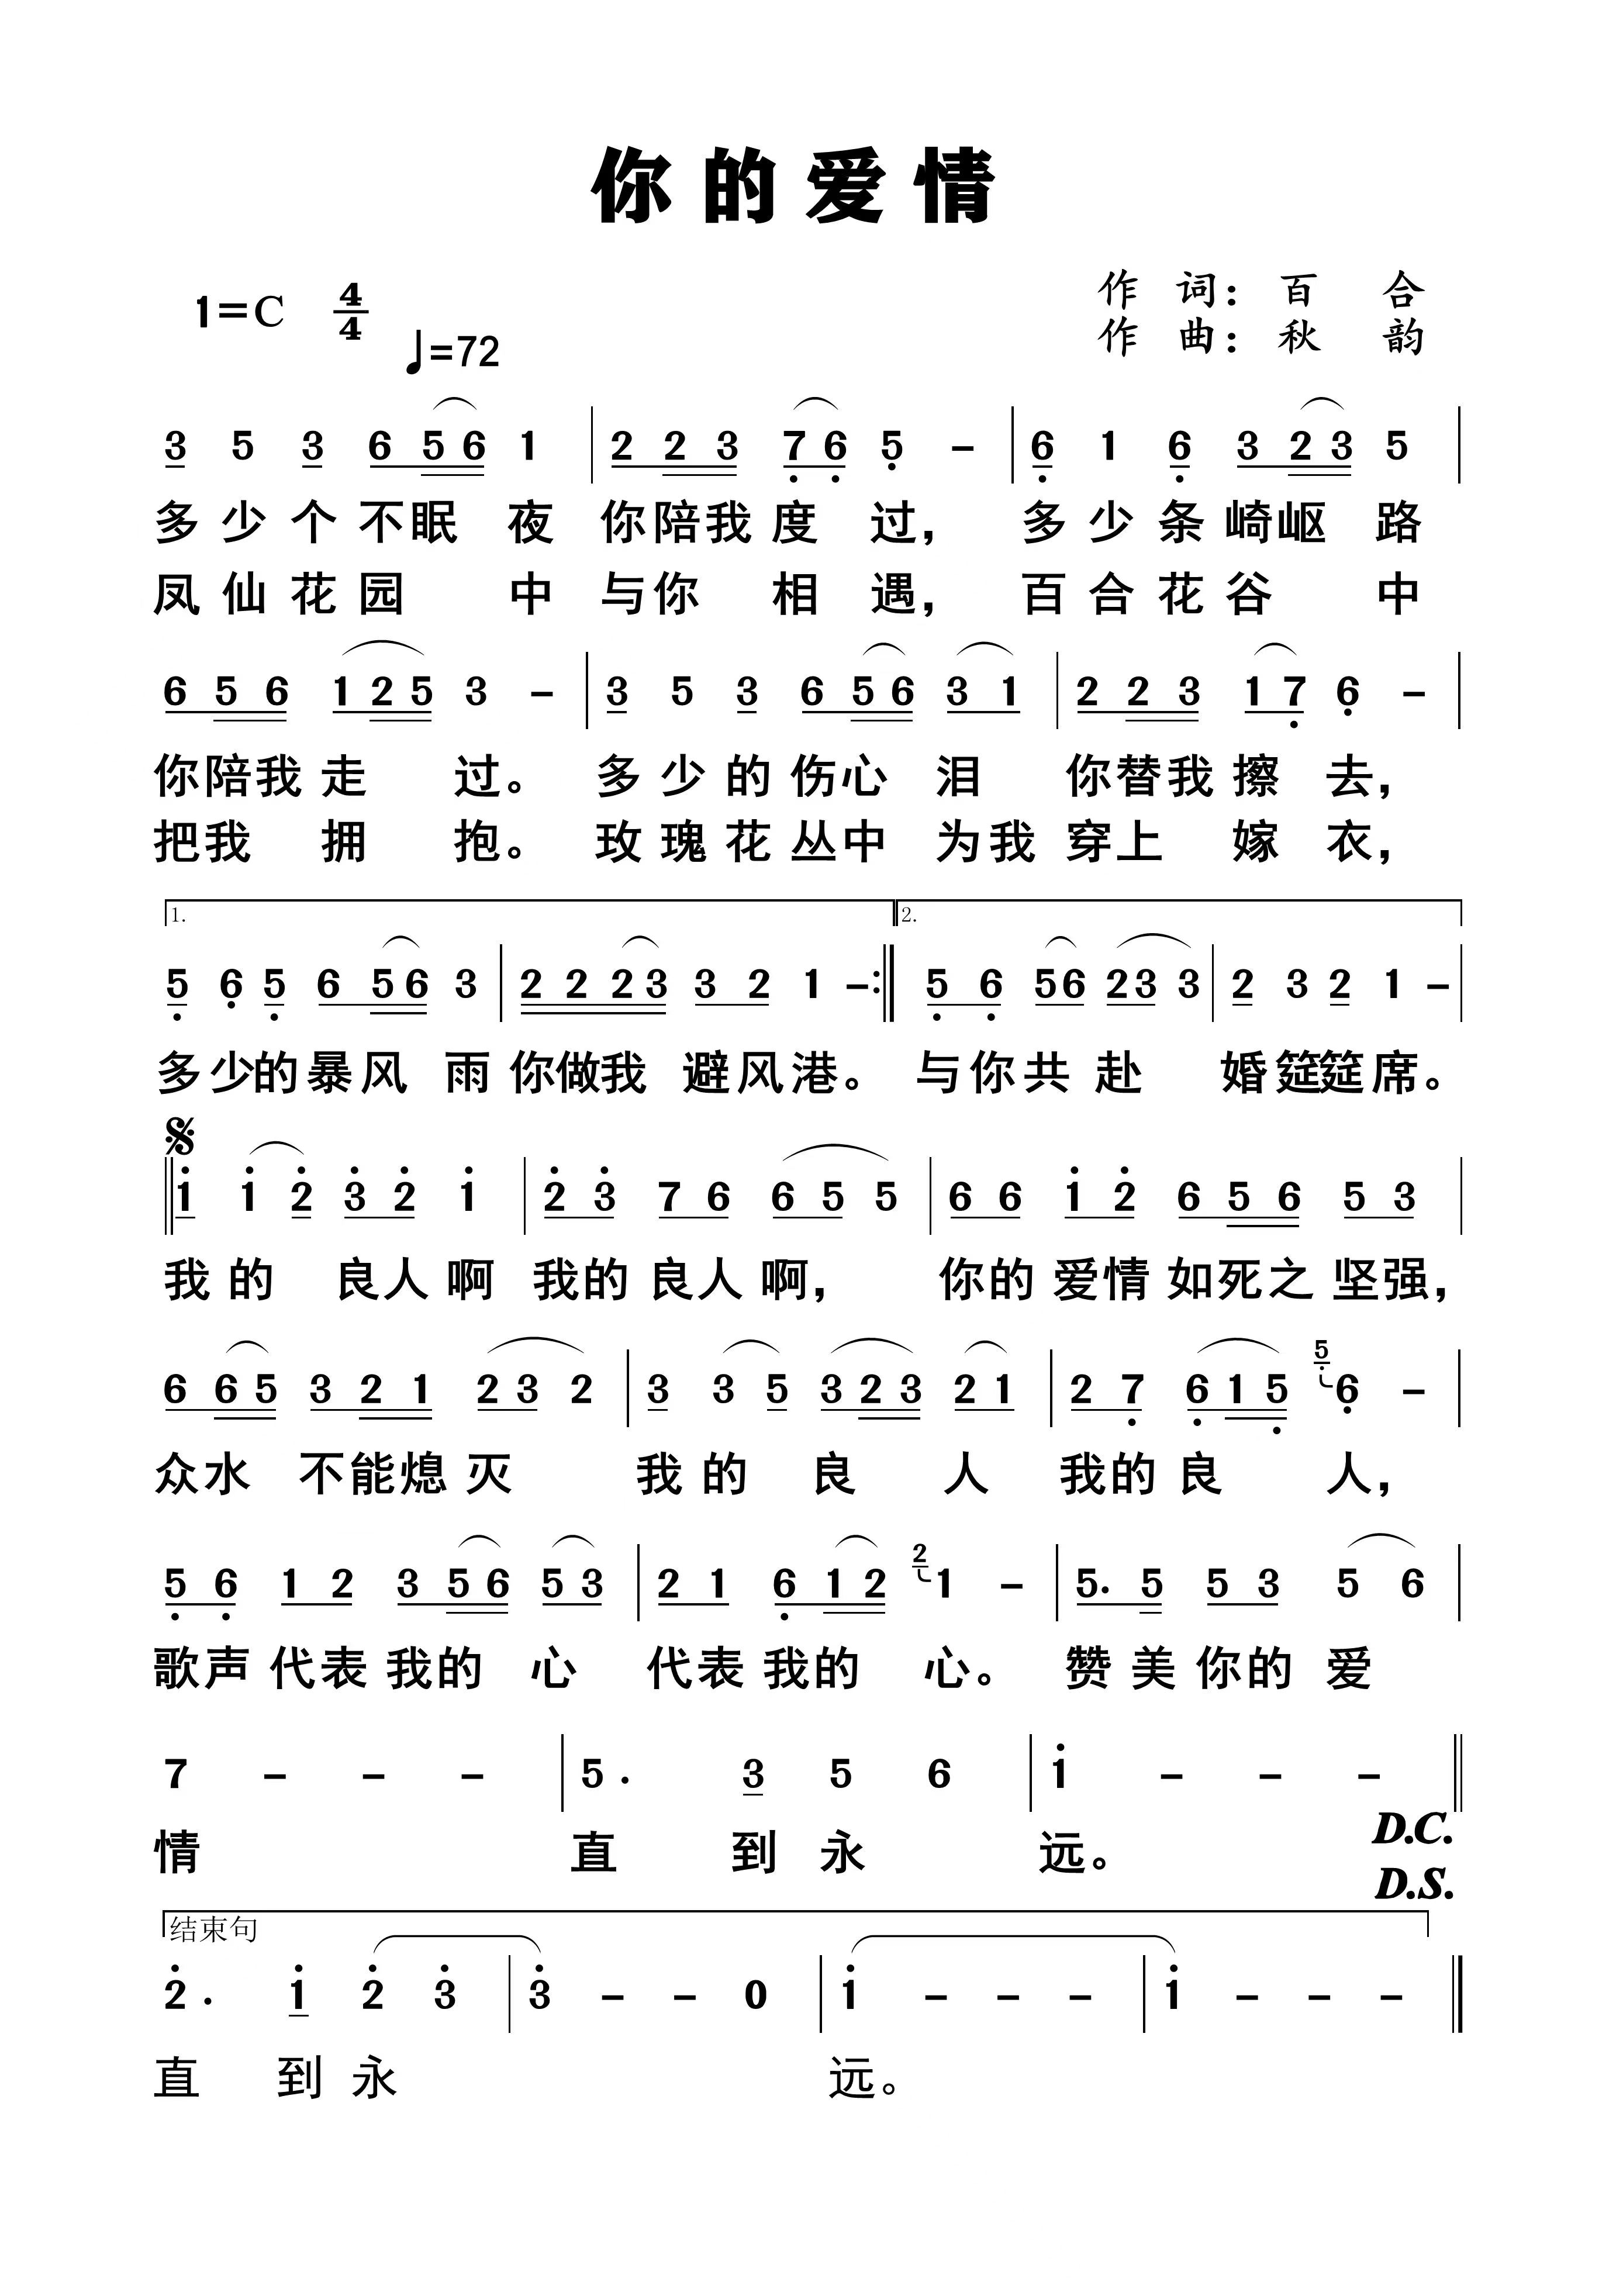 你的爱情
1=C 4/4
♩=72
作 词：百 合
作 曲：秋 韵
3 5 3 6 5 6 1 | 2 2 3 7 6 5 – | 6 1 6 3 2 3 5 |
多少个不眠 夜 你陪我度 过， 多少条崎岖 路
凤仙花园 中 与你 相 遇， 百合花谷 中
6 5 6 1 2 5 3 – | 3 5 3 6 5 6 3 1 | 2 2 3 1 7 6 – |
你陪我走 过。 多少的伤心 泪 你替我擦 去，
把我 拥 抱。 玫瑰花丛中 为我 穿上 嫁 衣，
1. 2.
5 6 5 6 5 6 3 | 2 2 2 3 3 2 1 – :‖ 5 6 5 6 2 3 3 | 2 3 2 1 – |
多少的暴风 雨 你做我 避风港。 与你共赴 婚筵筵席。
‖ 1 1 2 3 2 1 | 2 3 7 6 6 5 5 | 6 6 1 2 6 5 6 5 3 |
我的 良人啊 我的良人啊， 你的爱情如死之坚强，
6 6 5 3 2 1 2 3 2 | 3 3 5 3 2 3 2 1 | 2 7 6 1 5 5 6 – |
众水 不能熄灭 我的 良 人 我的良 人，
5 6 1 2 3 5 6 5 3 | 2 1 6 1 2 2 1 – | 5. 5 5 3 5 6 |
歌声代表我的 心 代表我的 心。 赞美你的爱
7 – – – | 5 . 3 5 6 | 1 – – – ‖
情 直 到永 远。
D.C.
D.S.
结束句
2 . 1 2 3 | 3 – – 0 | 1 – – – | 1 – – – ‖
直 到永 远。